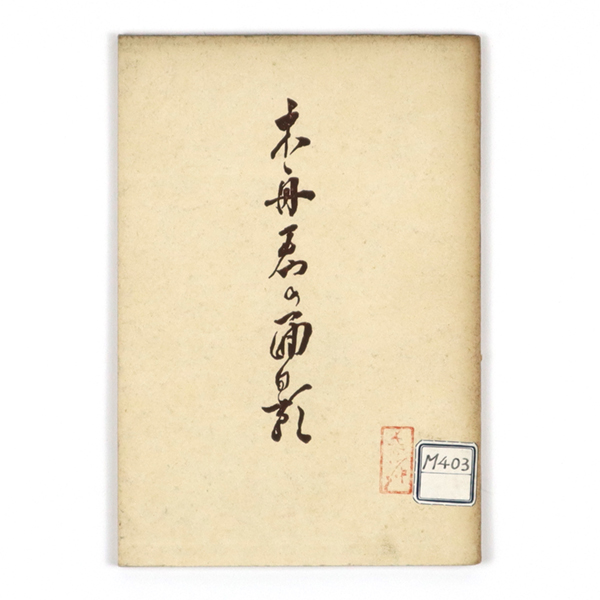 舟君の面影
M403